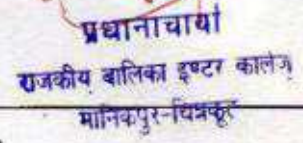 प्रधानाचार्या
राजकीय बालिका इण्टर कालेज
मानिकपुर-चित्रकूट